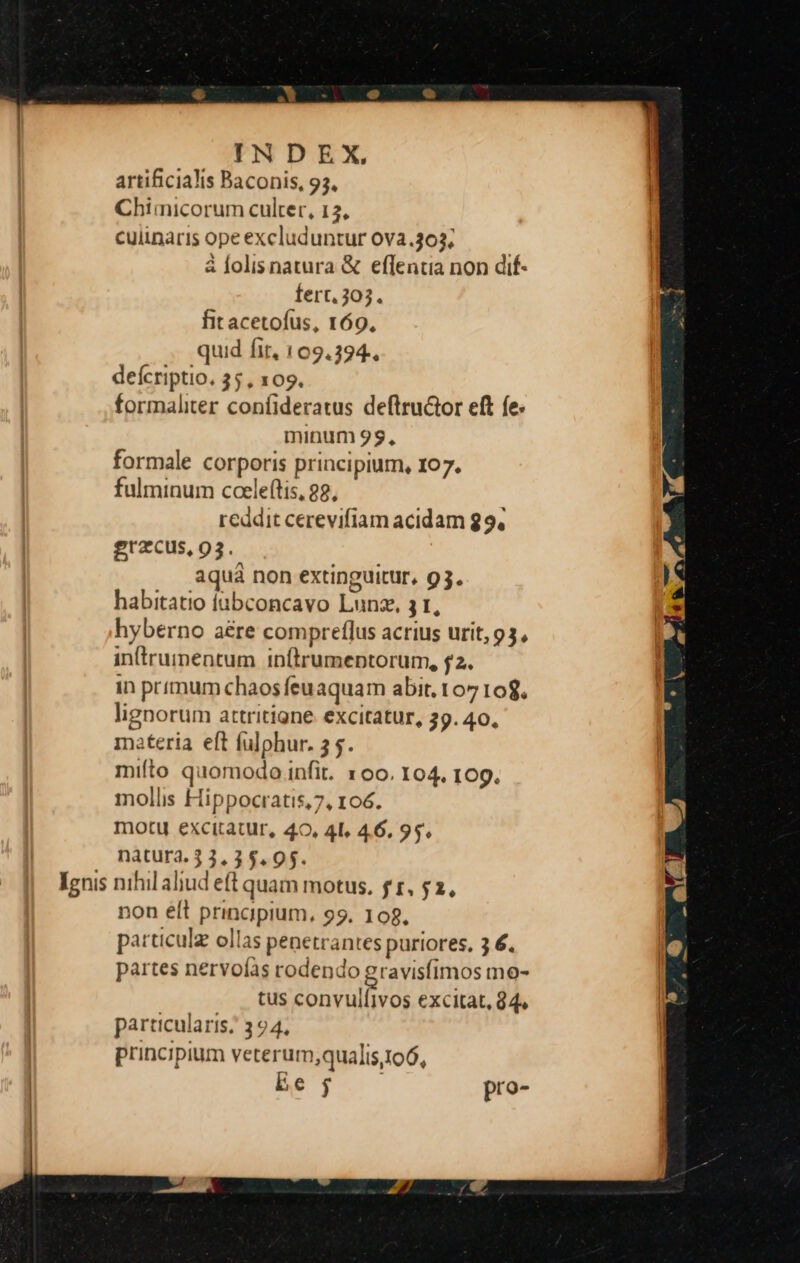 INDEX.
artificialis Baconis, 93.
Chimicorum culter, 13.
culinaris ope excluduntur ova. 303;
à ſolis natura & eſſentia non dif-
fert, 303.
fit acetoſus, 169.
quid ſit, 109. 394.
deſcriptio. 35, 109.
formaliter conſideratus deſtructor eſt ſe-
minum 99.
formale corporis principium, 107.
fulminum cœleſtis, 88,
reddit cereviſiam acidam 89.
græcus, 93.
aquâ non extinguitur, 93.
habitatio ſubconcavo Lunæ, 31,
hyberno aëre compreſſus acrius urit, 93,
inſtrumentum inſtrumentorum, 52.
in primum chaos ſeu aquam abit, 107 108.
lignorum attritione excitatur, 39. 40.
materia eſt ſulphur. 35.
miſto quomodo inſit. 100. 104. 109.
mollis Hippocratis, 7, 106.
motu excitatur, 40, 41. 46. 95.
natura. 33. 35. 95.
Ignis nihil aliud eſt quam motus. 51, 52,
non eſt principium, 99. 108.
particulæ ollas penetrantes puriores. 36.
partes nervoſas rodendo gravisſimos mo-
tus convulſivos excitat, 84,
particularis. 394.
principium veterum, qualis, 106,
Ee 5 pro-